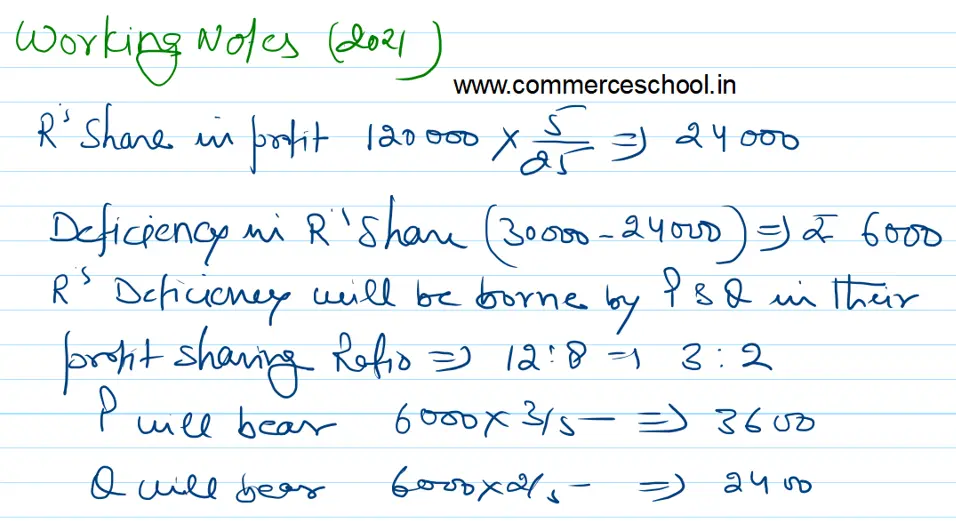 Working Notes (2021)
www.commerceschool.in
R's Share in profit 120000 × 5/25 ⇒ 24000
Deficiency in R's Share (30000 - 24000) ⇒ ₹ 6000
R's Deficiency will be borne by P & Q in their
profit sharing Ratio ⇒ 12:8 ⇒ 3:2
P will bear 6000 × 3/5 ⇒ 3600
Q will bear 6000 × 2/5 ⇒ 2400